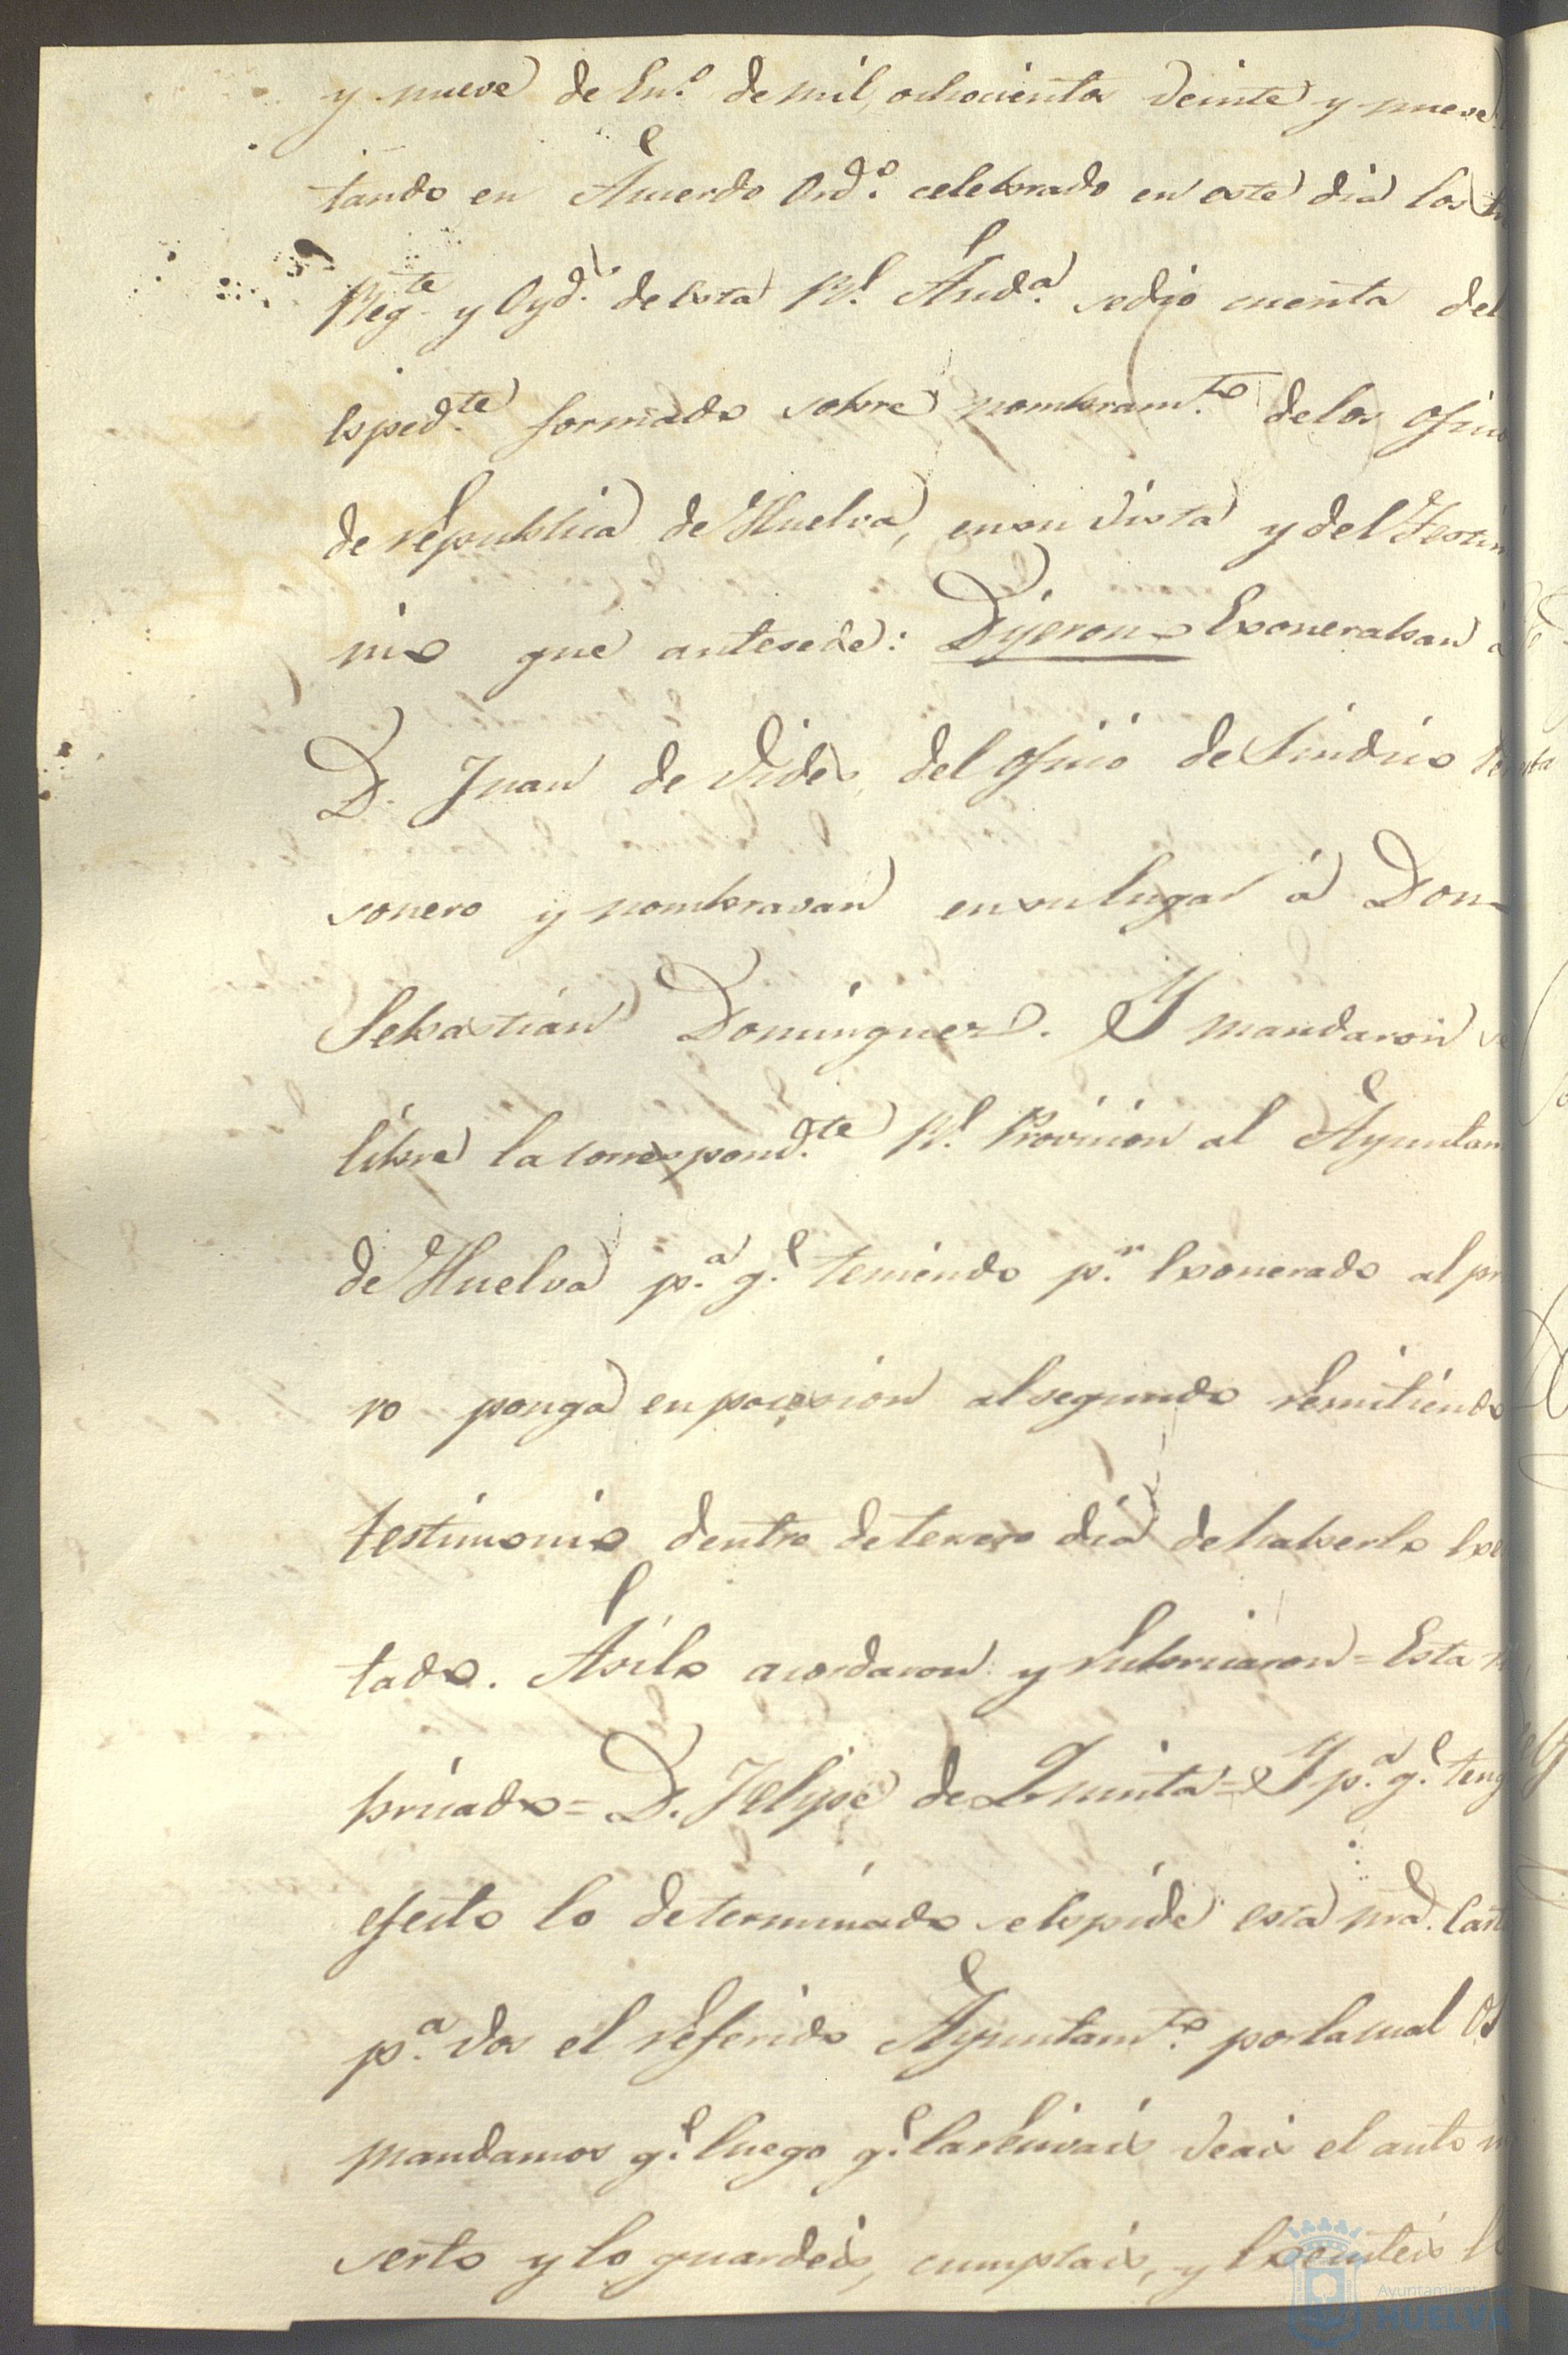 y nueve de En.º de mil, ochocientos veinte y nueve
tando en Acuerdo Ord.º celebrado en este dia los
Reg.te y Oyd.s de esta R.l Aud.a se dio cuenta del
Esped.te formado sobre nombram.to de los ofici
de republica de Huelva, en su vista y del Testim
nio que antesede: Dijeron Exoneraban a
D. Juan de Vides, del oficio de Sindico Per
sonero y nombravan en su lugar á Don
Sebastián Dominguez. Y mandaron se
libre la correspond.te R.l Provision al Ayuntam
de Huelva p.a q.e teniendo p.r Exonerado al pr
ro ponga en pocesion al segundo remitiendo
testimonio dentro de tercero dia de haberlo Exe
tado. Asi lo acordaron y rubricaron = Esta
bricado = D. Felipe de Quinta = Y p.a q.e teng
efecto lo determinado se Espide esta nra. Cart
p.a vos el referido Ayuntam.to por la cual Os
mandamos q.e luego q.e la recivais veais el auto in
serto y lo guardeis, cumplais, y Executeis
Ayuntamiento
HUELVA